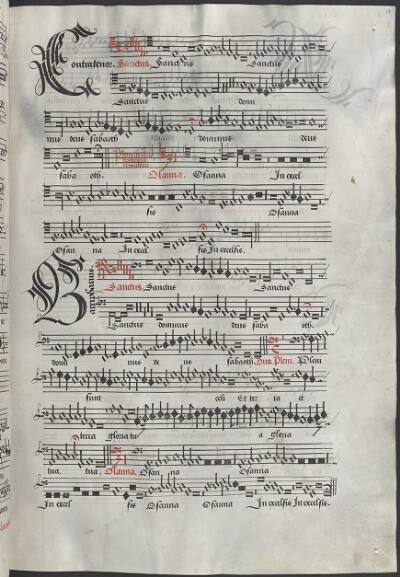 Contratenor. Sanctus, Sanctus Sanctus
Sanctus domi
nus deus sabaoth dominus deus
saba oth. Osanna. Osanna In excel
sis Osanna
Osan na In excel sis In excelsis.
Bariphanus. Sanctus, Sanctus Sanctus
Sanctus dominus deus saba oth.
domi nus de us sabaoth. Duo. Pleni. Pleni
sunt celi Et ter ra et
terra gloria tu a gloria
tua. tua. Osanna. Osan na Osanna
In excel sis Osanna Osanna In excelsis In excelsis.